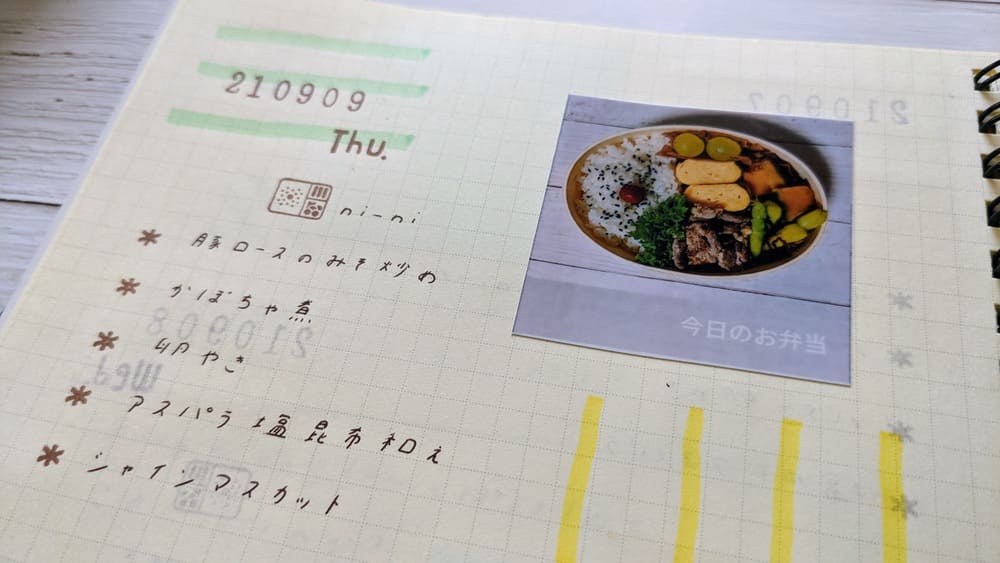 210909
Thu.
ni-ni
* 豚ロースのみそ炒め
* かぼちゃ煮
* 卵やき
* アスパラ塩昆布和え
* シャインマスカット
今日のお弁当
210907
210908
Wed.